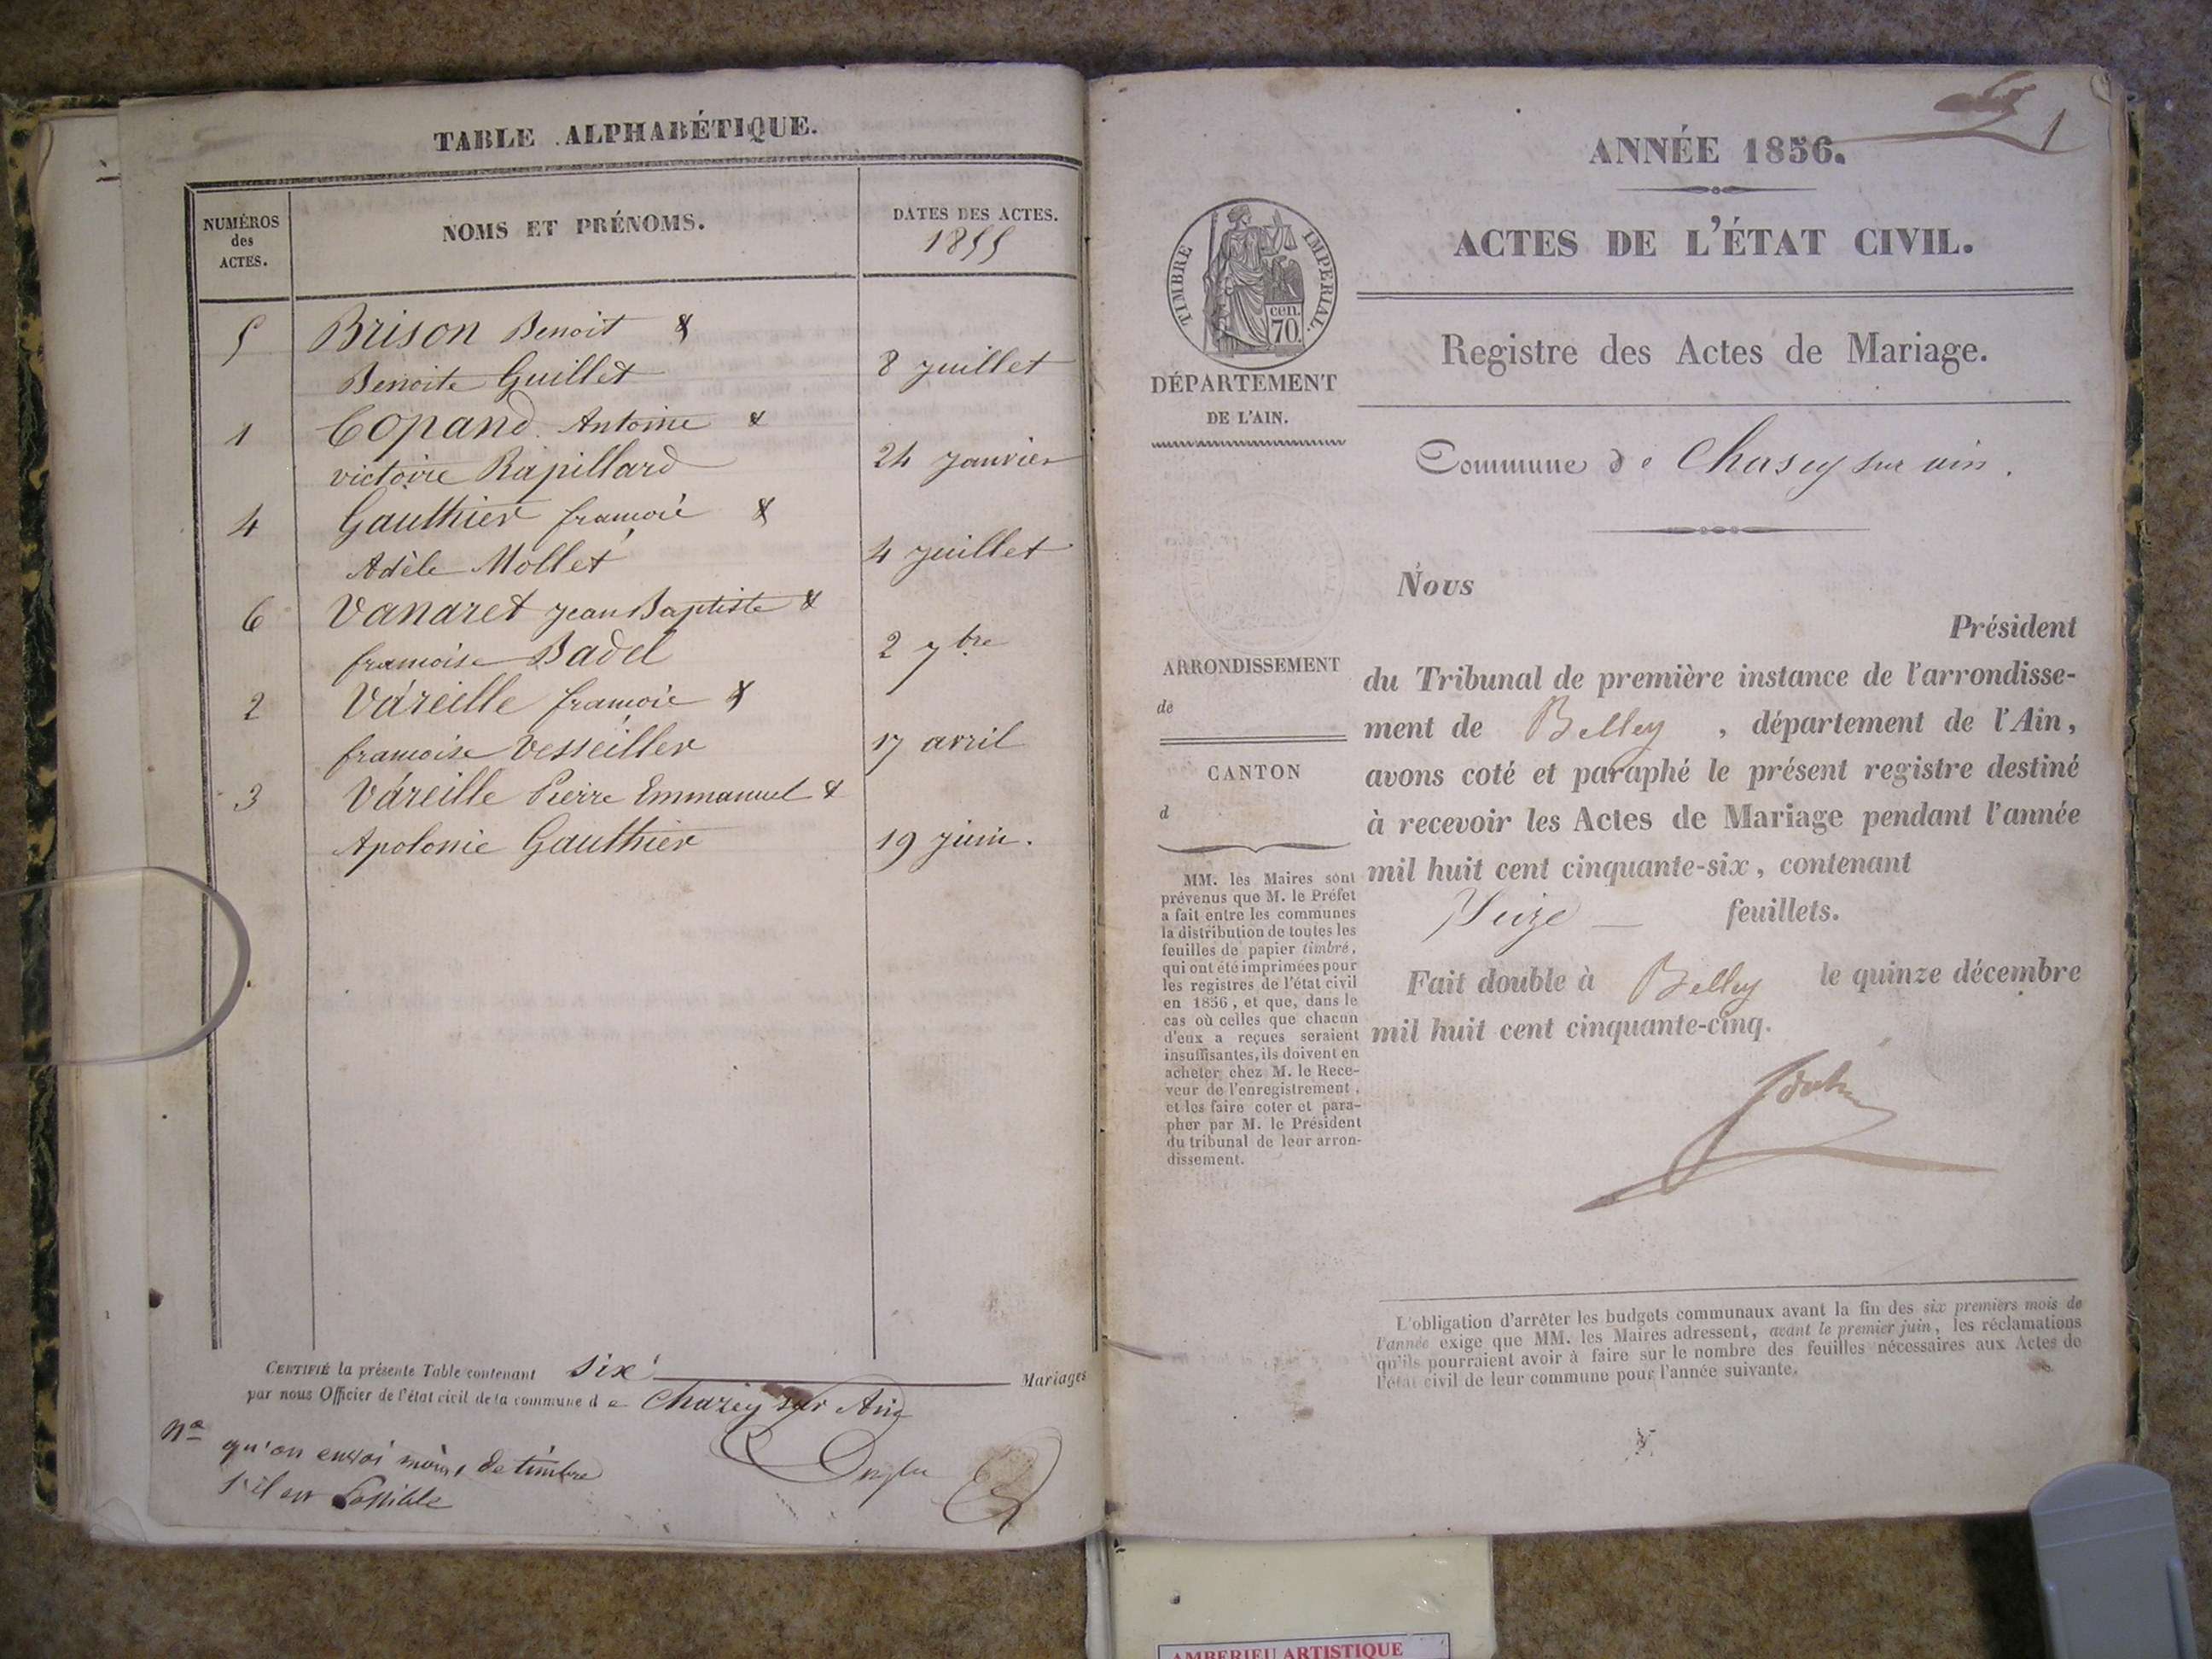 TABLE ALPHABÉTIQUE.
NUMÉROS
des
ACTES.
NOMS ET PRÉNOMS.
DATES DES ACTES.
1855
5 Brison Benoit &
Benoite Guillet 8 juillet
1 Copand Antoine &
victoire Rapillard 24 janvier
4 Gauthier francoié &
Adèle Mollet 4 juillet
6 Vanaret jean Baptiste &
francoise Badel 2 7bre
2 Váreille francoié &
francoise Vesseiller 17 avril
3 Váreille Pierre Emmanuel &
Apolonie Gauthier 19 juin.
CERTIFIÉ la présente Table contenant six Mariages
par nous Officier de l'état civil de la commune d e Chazey sur Ain
Na qu'on envoi moins de timbre
s'il est Possible
1
ANNÉE 1856.
ACTES DE L'ÉTAT CIVIL.
TIMBRE IMPERIAL.
cen.
70.
DÉPARTEMENT
DE L'AIN.
Registre des Actes de Mariage.
Commune de Chasey sur ain.
Nous
Président
du Tribunal de première instance de l'arrondisse-
ment de Belley, département de l'Ain,
avons coté et paraphé le présent registre destiné
à recevoir les Actes de Mariage pendant l'année
mil huit cent cinquante-six, contenant
feuillets.
Fait double à Belley le quinze décembre
mil huit cent cinquante-cinq.
ARRONDISSEMENT
de
CANTON
d
MM. les Maires sont
prévenus que M. le Préfet
a fait entre les communes
la distribution de toutes les
feuilles de papier timbré,
qui ont été imprimées pour
les registres de l'état civil
en 1856, et que, dans le
cas où celles que chacun
d'eux a reçues seraient
insuffisantes, ils doivent en
acheter chez M. le Rece-
veur de l'enregistrement,
et les faire coter et para-
pher par M. le Président
du tribunal de leur arron-
dissement.
L'obligation d'arrêter les budgets communaux avant la fin des six premiers mois de
l'année exige que MM. les Maires adressent, avant le premier juin, les réclamations
qu'ils pourraient avoir à faire sur le nombre des feuilles nécessaires aux Actes de
l'état civil de leur commune pour l'année suivante.
AMBERIEU ARTISTIQUE